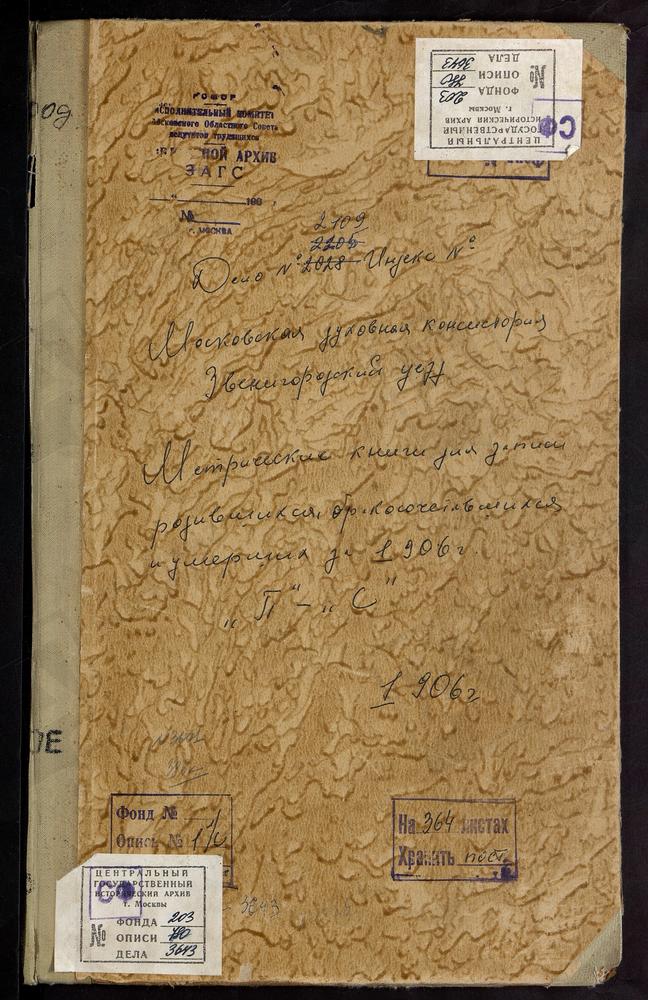 РСФСР
ИСПОЛНИТЕЛЬНЫЙ КОМИТЕТ
Московского Областного Совета
депутатов трудящихся
НОЙ АРХИВ
ЗАГС
№
г. МОСКВА
ЦЕНТРАЛЬНЫЙ
ГОСУДАРСТВЕННЫЙ
ИСТОРИЧЕСКИЙ АРХИВ
г. Москвы
ФОНДА 203
№ ОПИСИ 780
ДЕЛА 3643
СФ
2109
2205
Дело № 2028 Индекс №
Московская духовная консистория
Звенигородский уезд
Метрические книги для записи
родившихся, бракосочетавшихся
и умерших за 1906 г.
„П“ – „С“
1906 г
Фонд №
Опись № 1/6
На 364 листах
Хранить пост.
ЦЕНТРАЛЬНЫЙ
ГОСУДАРСТВЕННЫЙ
ИСТОРИЧЕСКИЙ АРХИВ
г. Москвы
СФ
ФОНДА 203
№ ОПИСИ 780
ДЕЛА 3643
3643